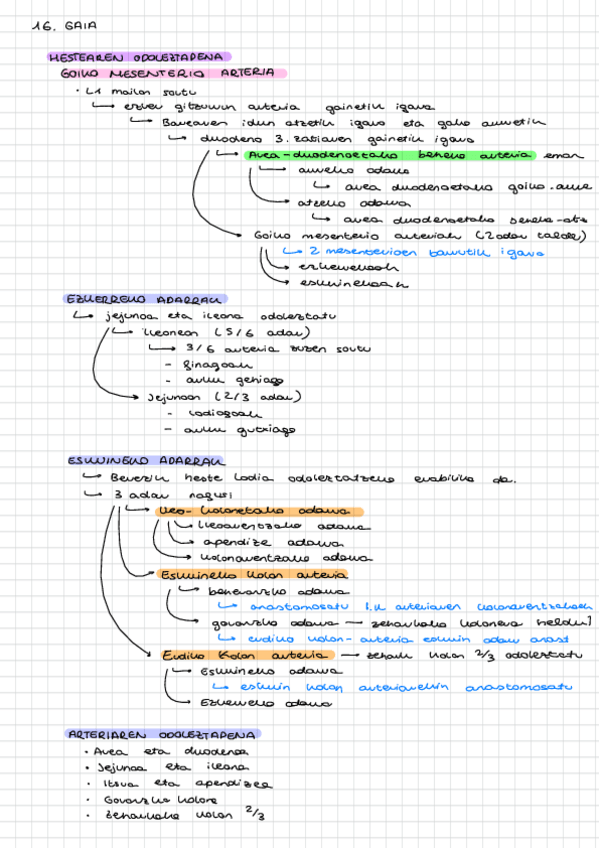 16. GAIA
HESTEAREN ODOLEZTAPENA
GOIKO MESENTERIO ARTERIA
· L1 mailan sortu
↳ ezker giltzurrun arteria gainetik igaro
↳ Barearen idun atzetik igaro eta gako aurretik
↳ duodeno 3. zatiaren gainetik igaro
↳ Area-duodenoetako beheko arteria eman
↳ aurreko adarra
↳ area duodenoetako goiko-aurre
↳ atzeko adarra
↳ area duodenoetako beheko-atze
Goiko mesenterio arteriak (2 adar talde)
↳ 2 mesenterioen barrutik igaro
↳ ezkerrekoak
↳ eskuinekoak
EZKERREKO ADARRAK
↳ Jejunoa eta ileona odoleztatu
↳ Ileonean (5/6 adar)
↳ 3/6 arteria zuzen sortu
- finagoak
- arku gehiago
Jejunoan (2/3 adar)
- lodiagoak
- arku gutxiago
ESKUINEKO ADARRAK
↳ Bereziki heste lodia odoleztatzeko erabiliko da.
↳ 3 adar nagusi
↳ Ileo-kolonetako adarra
↳ Ileoarentzako adarra
↳ apendize adarra
↳ kolonarentzako adarra
Eskuineko kolon arteria
↳ beheranzko adarra
↳ anastomosatu I.K arteriaren kolonarentzakoak
↳ goranzko adarra → zeharkako kolonera heldu
↳ erdiko kolon-arteria eskuin adar anast
Erdiko kolon arteria → zehark kolon 2/3 odoleztatu
↳ Eskuineko adarra
↳ eskuin kolon arteriarekin anastomosatu
↳ Ezkerreko adarra
ARTERIAREN ODOLEZTAPENA
· Area eta duodenoa
· Jejunoa eta ileona
· Itsua eta apendizea
· Goranzko kolona
· Zeharkako kolon 2/3